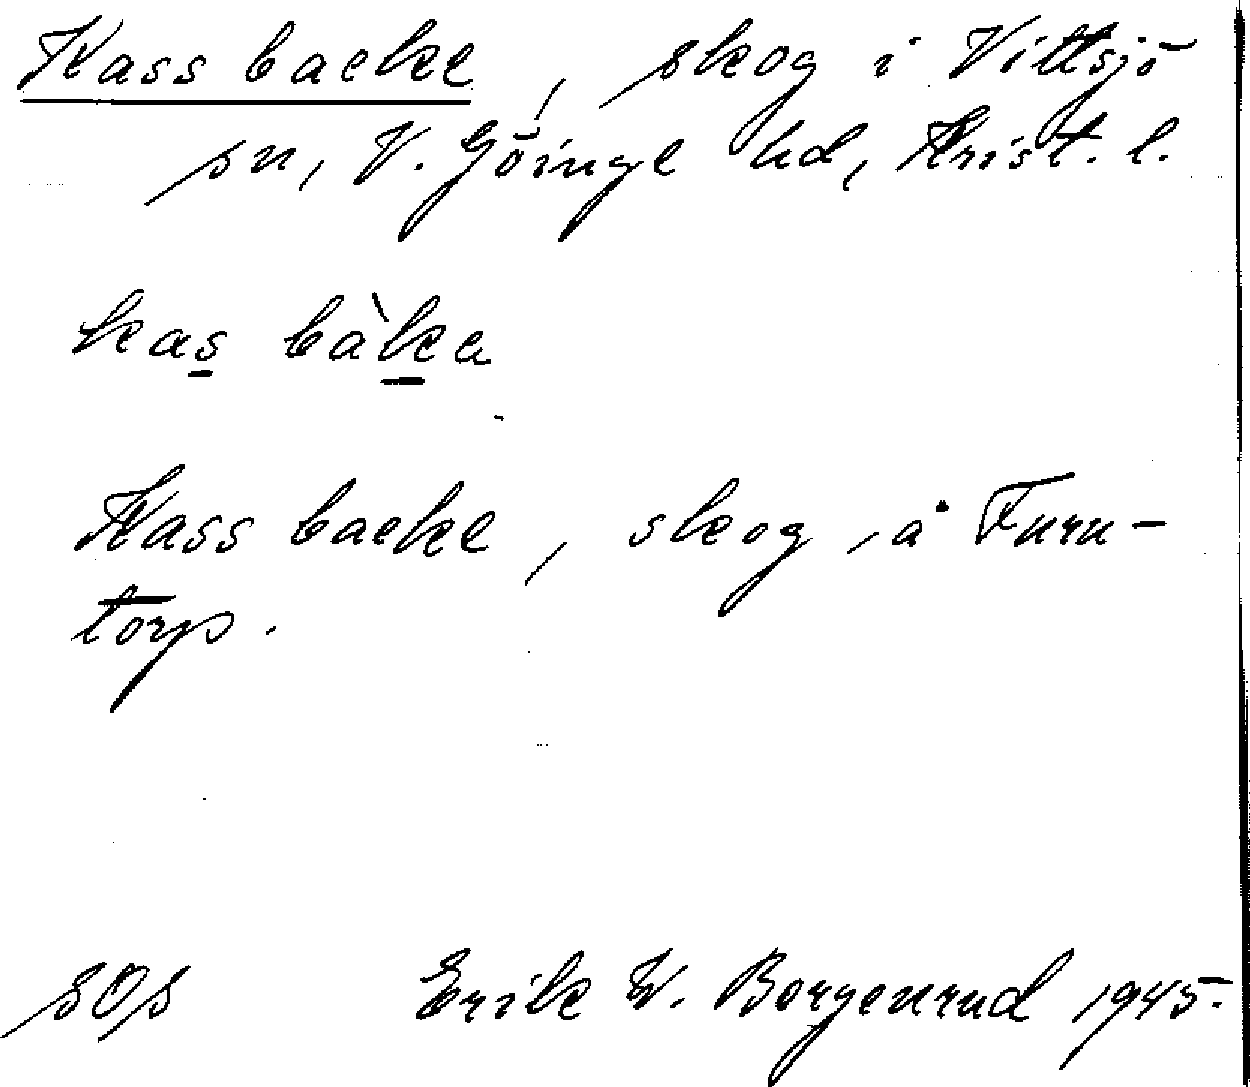 Kass backe, skog i Vittsjö
sn, V. Göinge hd, Krist. l.
kas bàka
Kass backe, skog, å Furu-
torp.
sOs Erik W. Borgenrud 1945.